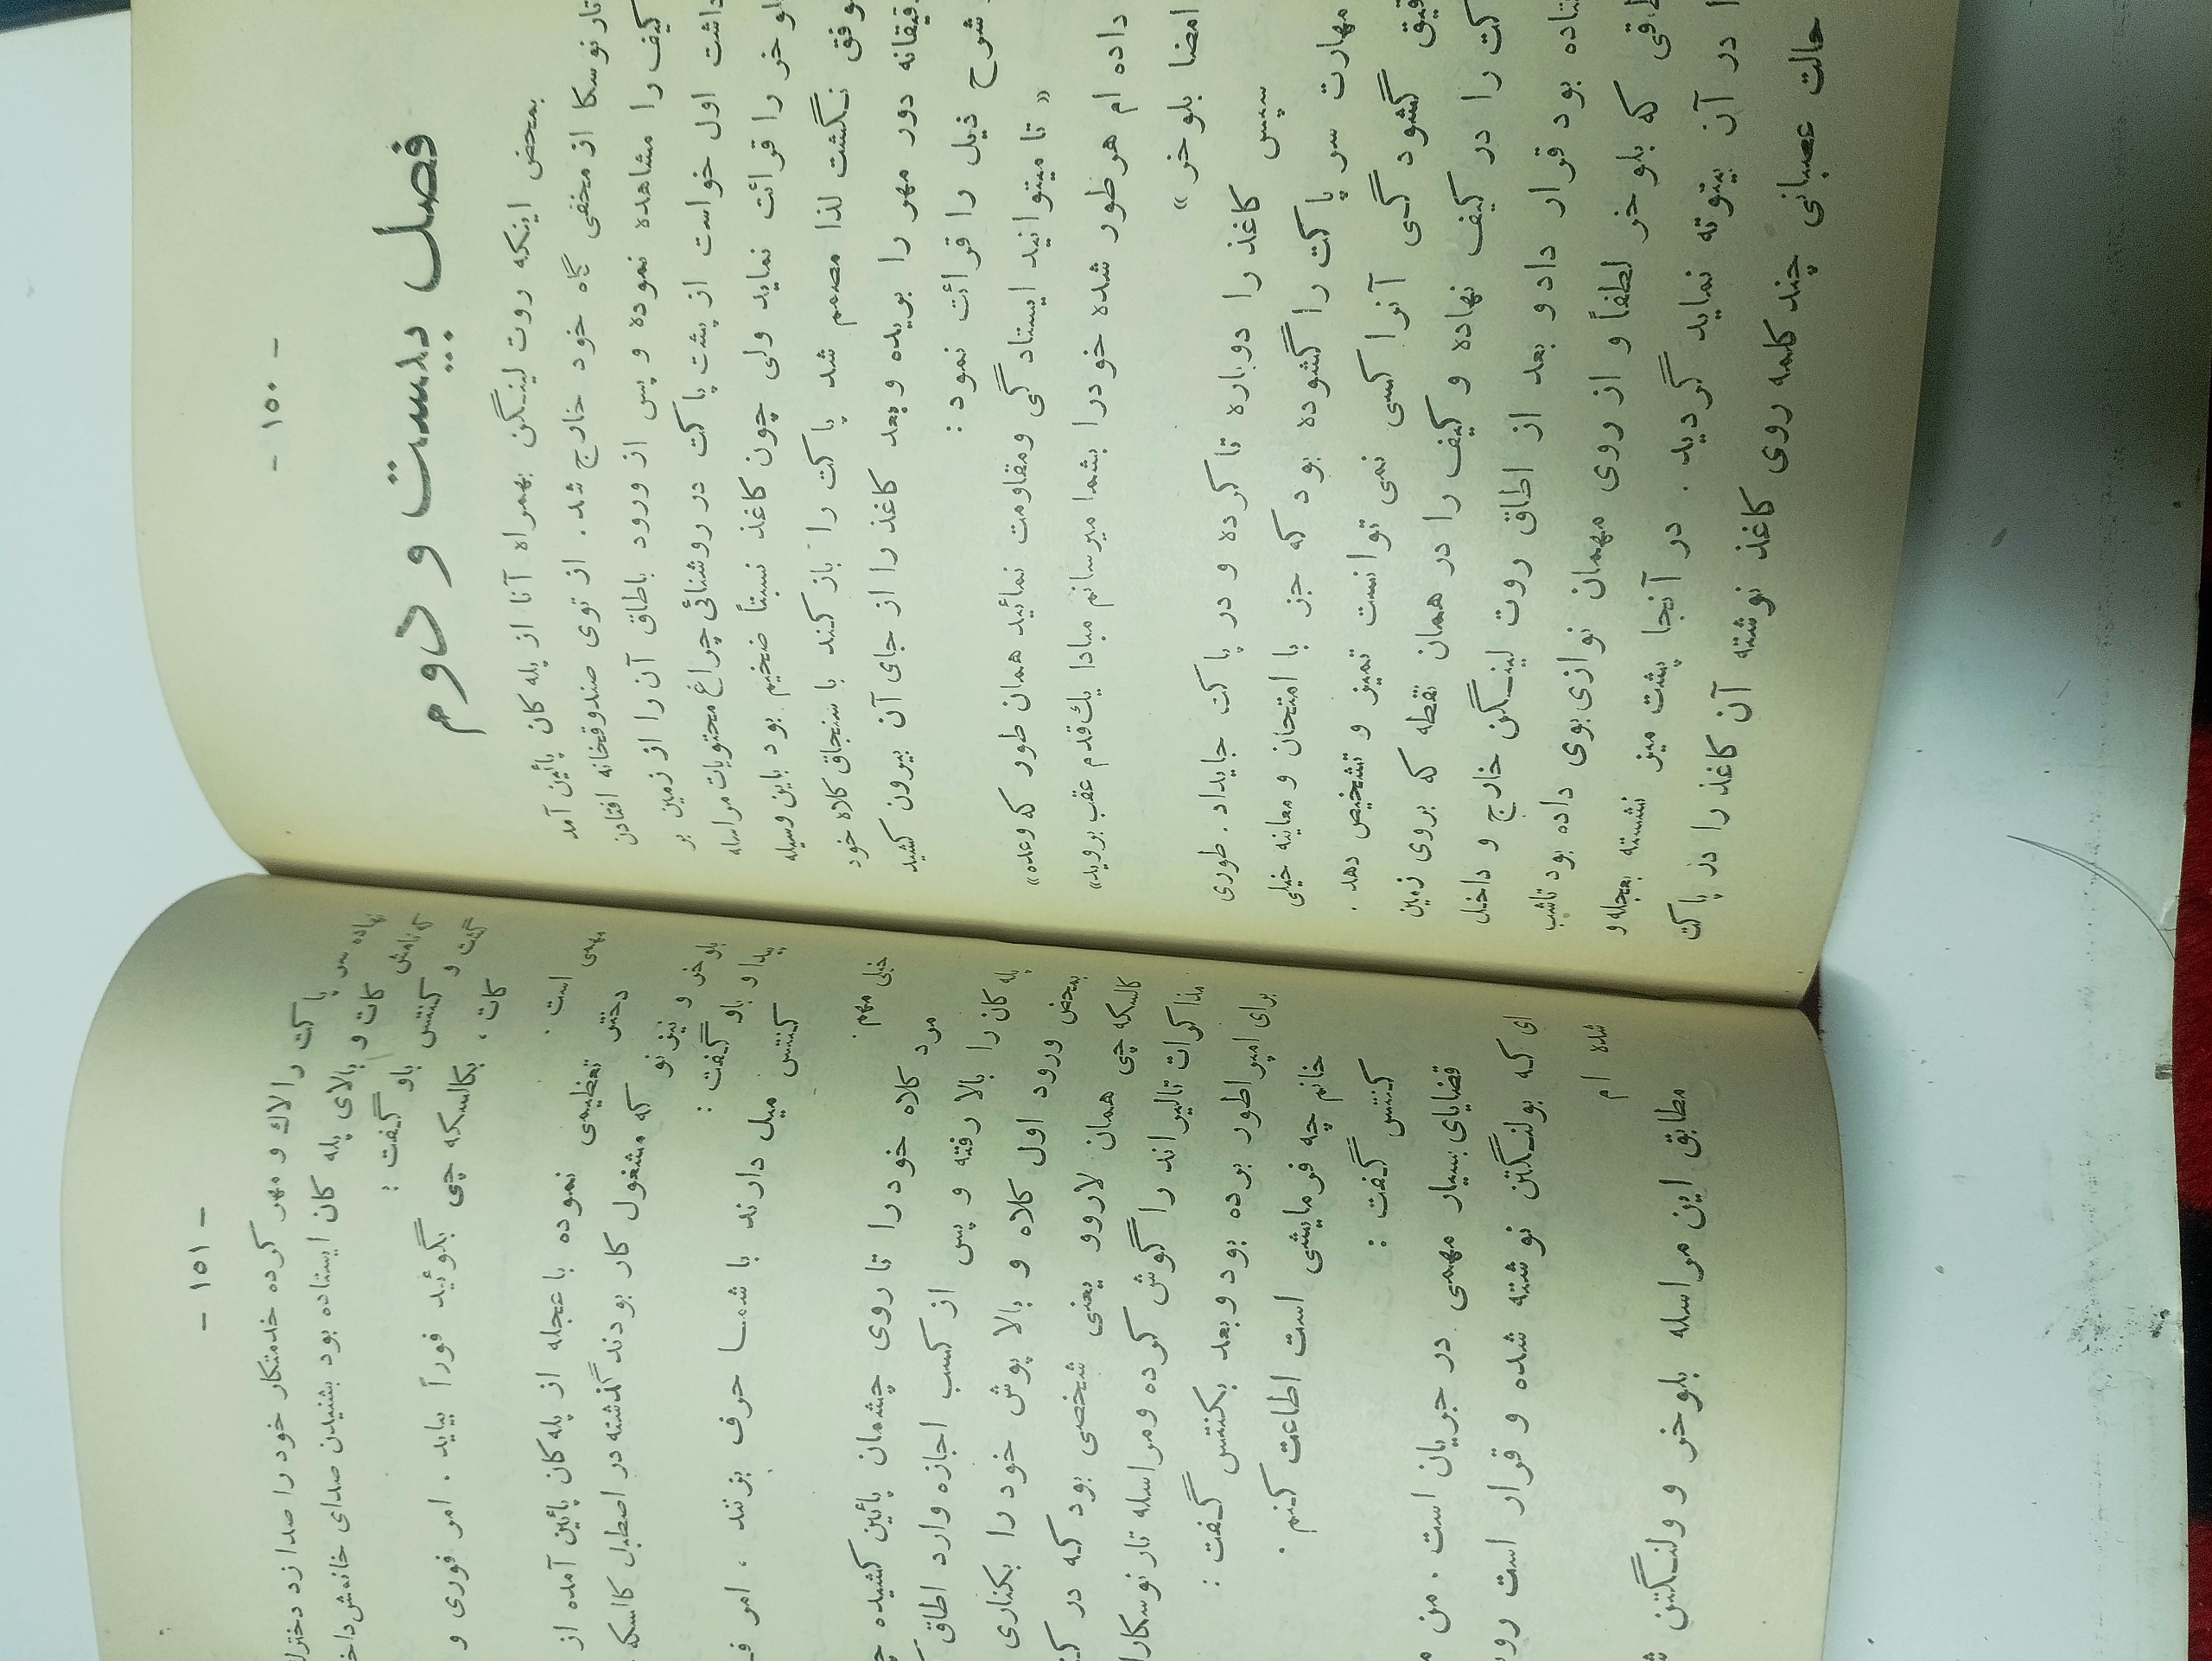 - ١٥٠ -
فصل بیست و دوم
بمحض اینکه روت لینگن بهمراه آنا از پله کان پائین آمد
تارنوسکا از مخفی گاه خود خارج شد. از توی صندوقخانه افتادن
کیف را مشاهده نموده و پس از ورود باطاق آن را از زمین بر
داشت اول خواست از پشت پاکت در روشنائی چراغ محتویات مراسله
خر را قرائت نماید ولی چون کاغذ نسبتاً ضخیم بود باین وسیله
نگشت لذا مصمم شد پاکت را باز کند با سنجاق کلاه خود
دور مهر را بریده وبعد کاغذ را از جای آن بیرون کشید
شرح ذیل را قرائت نمود:
« تا میتوانید ایستادگی ومقاومت نمائید همان طور که وعده»
داده ام هرطور شده خودرا بشما میرسانم مبادا یك قدم عقب بروید»
امضا بلوخر»
سپس کاغذ را دوباره تا کرده و در پاکت جایداد. طوری
مهارت سر پاکت را گشوده بود که جز با امتحان و معاینه خیلی
گشودگی آنرا کسی نمی توانست تمیز و تشخیص دهد.
را در کیف نهاده و کیف را در همان نقطه که بروی زمین
بود قرار داد و بعد از اطاق روت لینگن خارج و داخل
که بلوخر لطفاً و از روی مهمان نوازی بوی داده بود تا شب
در آن بیتوته نماید گردید. در آنجا پشت میز نشسته بعجله و
حالت عصبانی چند کلمه روی کاغذ نوشته آن کاغذ را در پاکت
- ١٥١ -
نهاده سر پاکت را لاك و مهر کرده خدمتکار خود را صدا زد
که نامش کات و بالای پله کان ایستاده بود بشنیدن صدای خانمش
کنتس باو گفت:
کات، بکالسکه چی بگوئید فوراً بیاید. امر فوری و
است.
دختر تعظیمی نموده با عجله از پله کان پائین آمده از
بلوخر و نیز نو که مشغول کار بودند گذشته در اصطبل
پیدا و باو گفت:
کنتس میل دارند با شما حرف بزنند، امر
خیلی مهم.
مرد کلاه خود را تا روی چشمان پائین کشیده
پله کان را بالا رفته و پس از کسب اجازه وارد اطاق
بمحض ورود اول کلاه و بالا پوش خود را بکناری
کالسکه چی همان لاروو یعنی شخصی بود که در
مذاکرات تالیراند را گوش کرده ومراسله تارنوسکارا
برای امپراطور برده بود وبعد بکنتس گفت:
خانم چه فرمایشی است اطاعت کنم.
کنتس گفت:
قضایای بسیار مهمی در جریان است. من
ای که بولنگتن نوشته شده و قرار است
شده ام
مطابق این مراسله بلوخر و ولنگتن